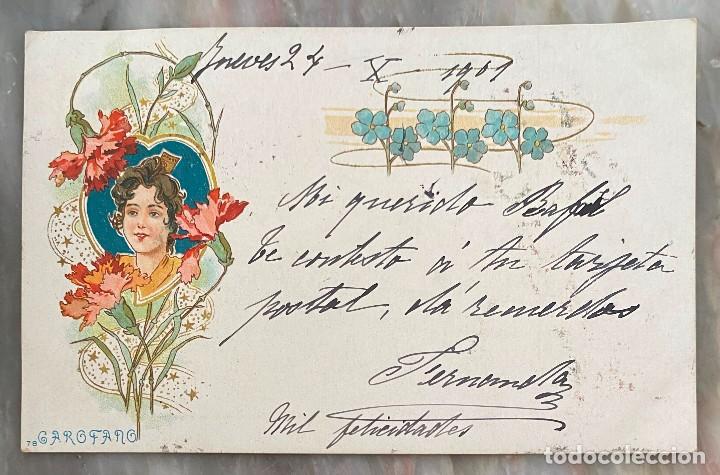 Jueves 24 - X - 1901
Mi querido Rafael
te contesto á tu tarjeta
postal, dá recuerdos
Fernanda
Mil felicidades
78 GAROFANO
todocoleccion.net